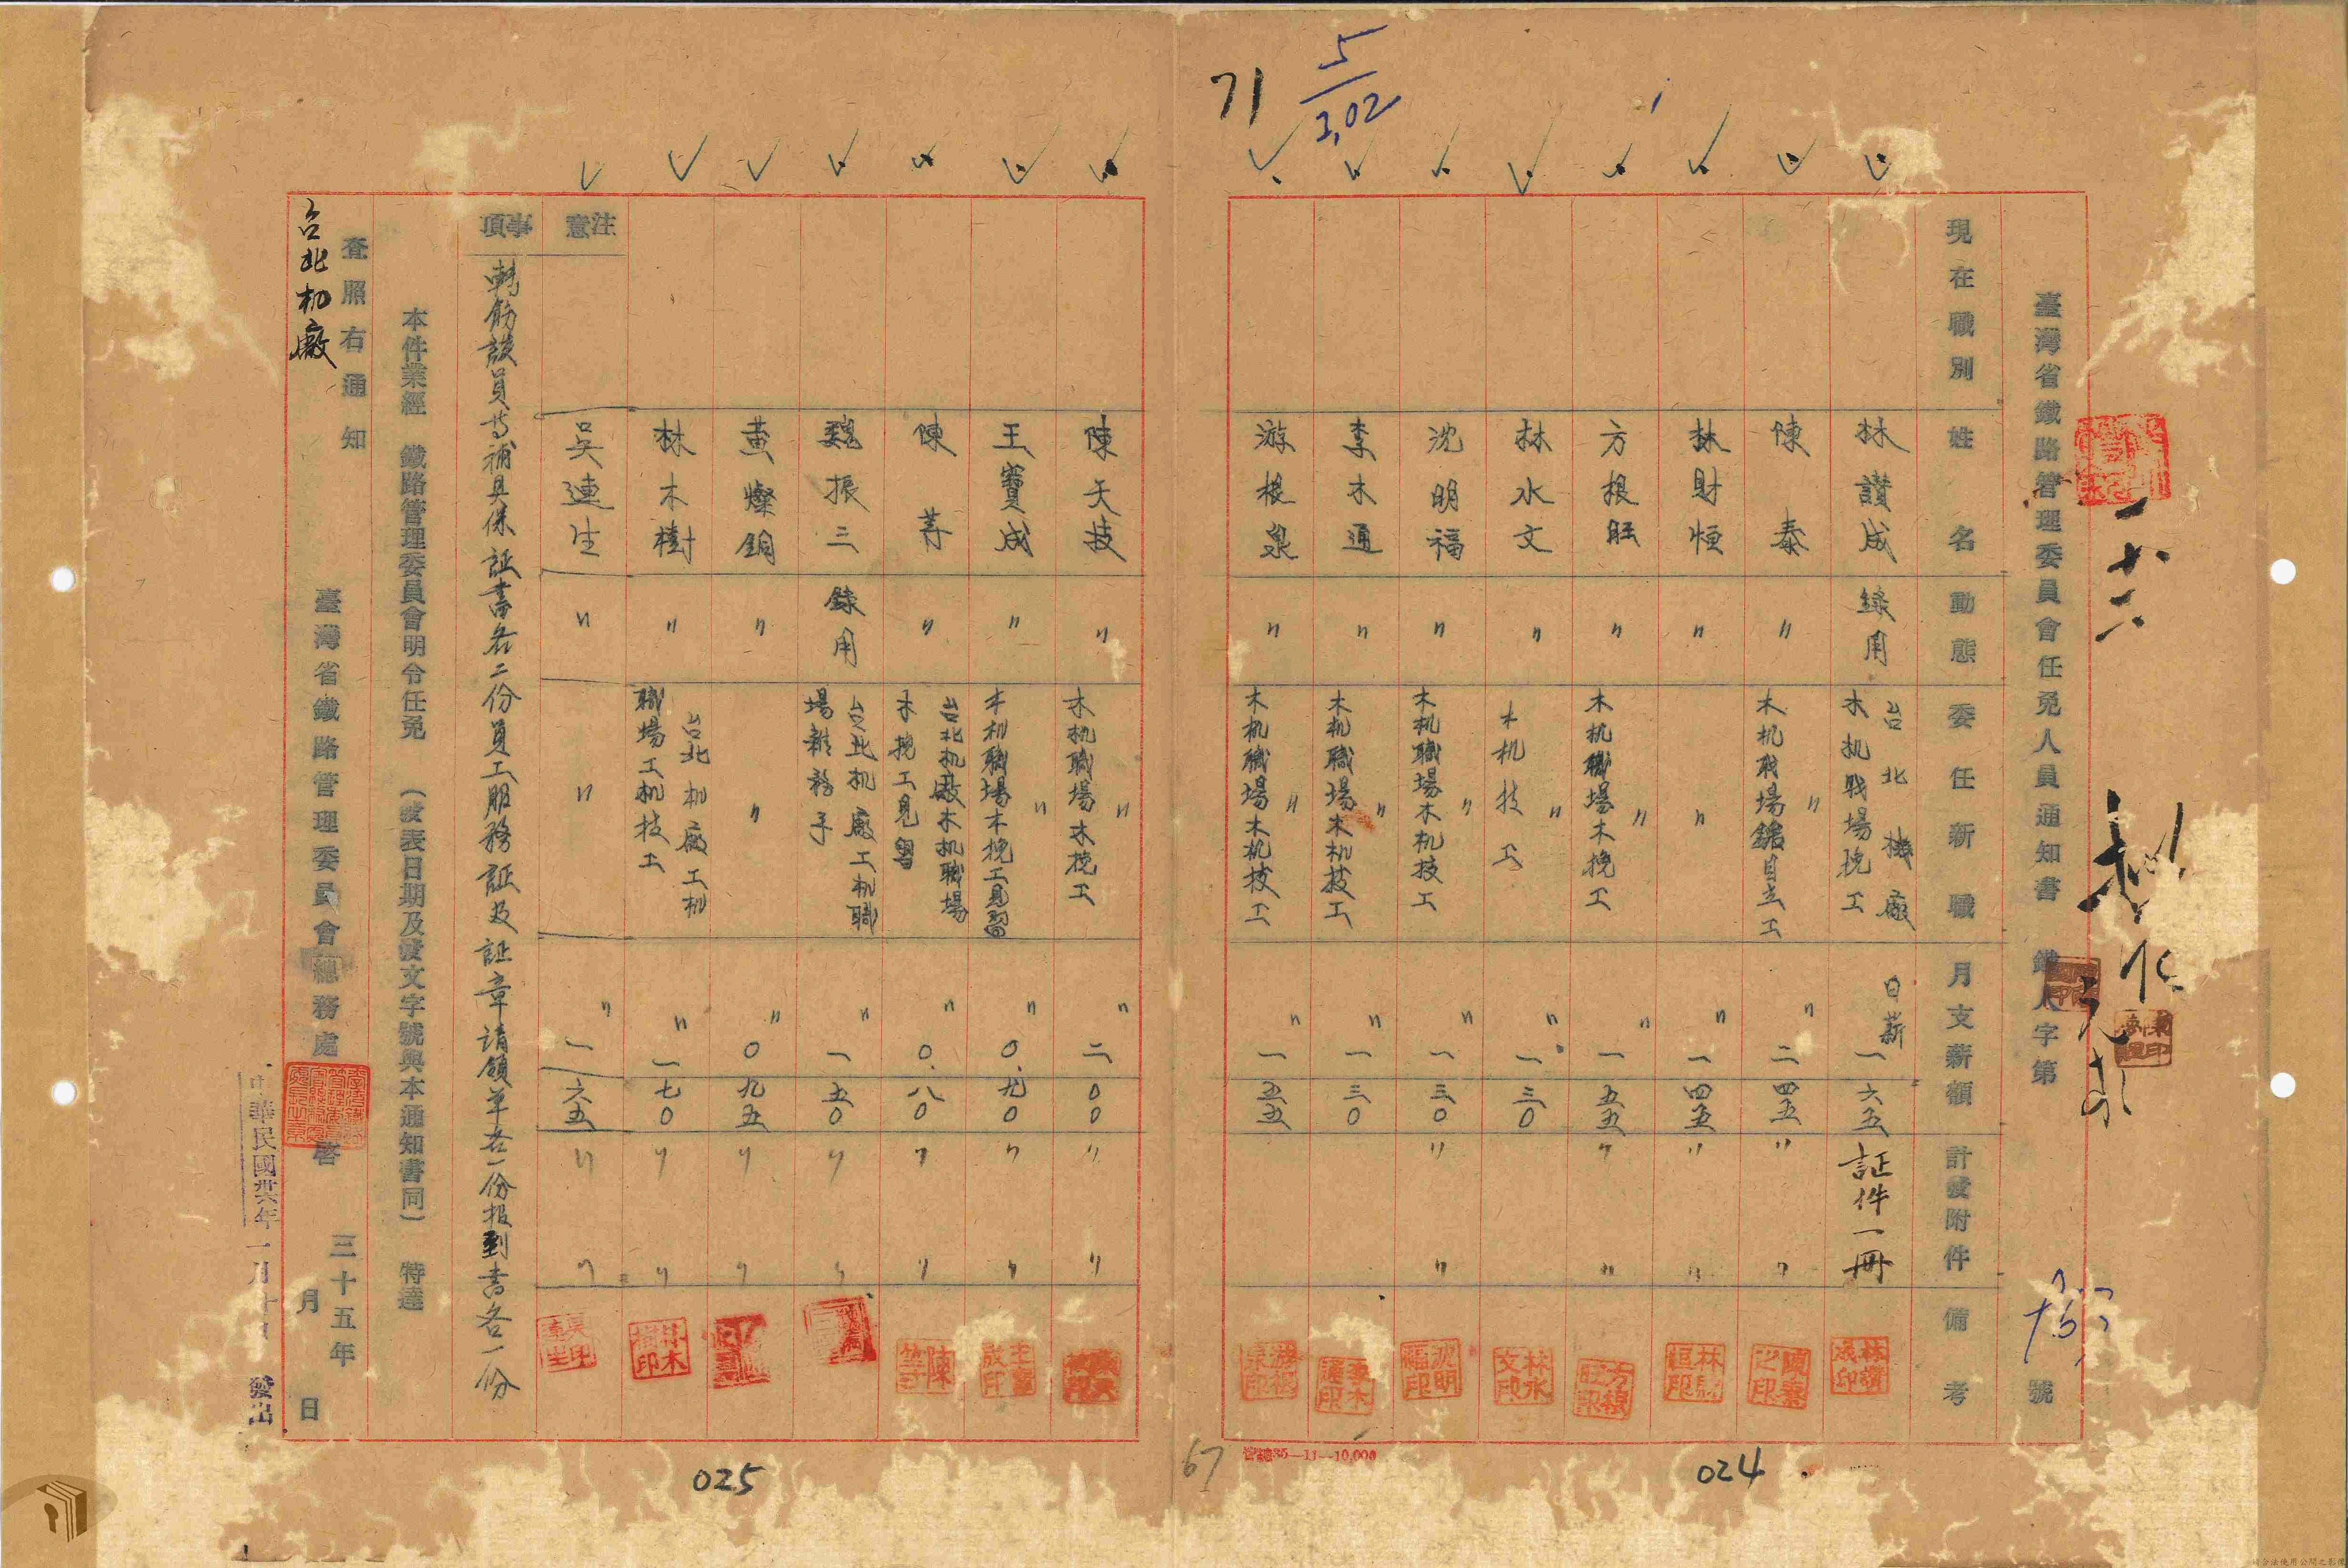 臺灣省鐵路管理委員會任免人員通知書 鐵人字第 號
現在職別 姓名 動態 委任新職 月支薪額 計發附件 備考
林讚成 錄用 台北機廠木机職場挽工 日薪 一六五 証件一冊
陳泰 〃 〃木机職場鋸目立工 〃 二四五 〃 〃
林財恒 〃 〃 〃 一四五 〃 〃
方根旺 〃 〃木机職場木挽工 〃 一五五 〃 〃
林水文 〃 〃木机技工 〃 一三0
沈明福 〃 〃木机職場木机技工 〃 一三0 〃 〃
李木通 〃 〃木机職場木机技工 〃 一三0
游根泉 〃 〃木机職場木机技工 〃 一五五
陳天技 〃 〃木机職場木挽工 〃 二00 〃 〃
王寶成 〃 〃木机職場木挽工見習 〃 0.九0 〃 〃
陳等 〃 台北机廠木机職場木挽工見習 〃 0.八0 〃 〃
魏振三 錄用 台北机廠工机職場雜務手 〃 一五0 〃 〃
黃燦銅 〃 〃 〃 0九五 〃 〃
林木樹 〃 台北机廠工机職場工机技工 〃 一七0 〃 〃
吳連生 〃 〃 〃 一六五 〃 〃
注意事項
轉飭該員等補具保証書各二份員工服務証及証章請領單各一份报到書各一份
本件業經 鐵路管理委員會明令任免 (發表日期及發文字號與本通知書同) 特達
查照右通知
台北机廠
臺灣省鐵路管理委員會總務處啓
三十五年 月 日
中華民國卅六年一月十 日 發出
71
5
3,02
67
管總35—11--10,000
024
025